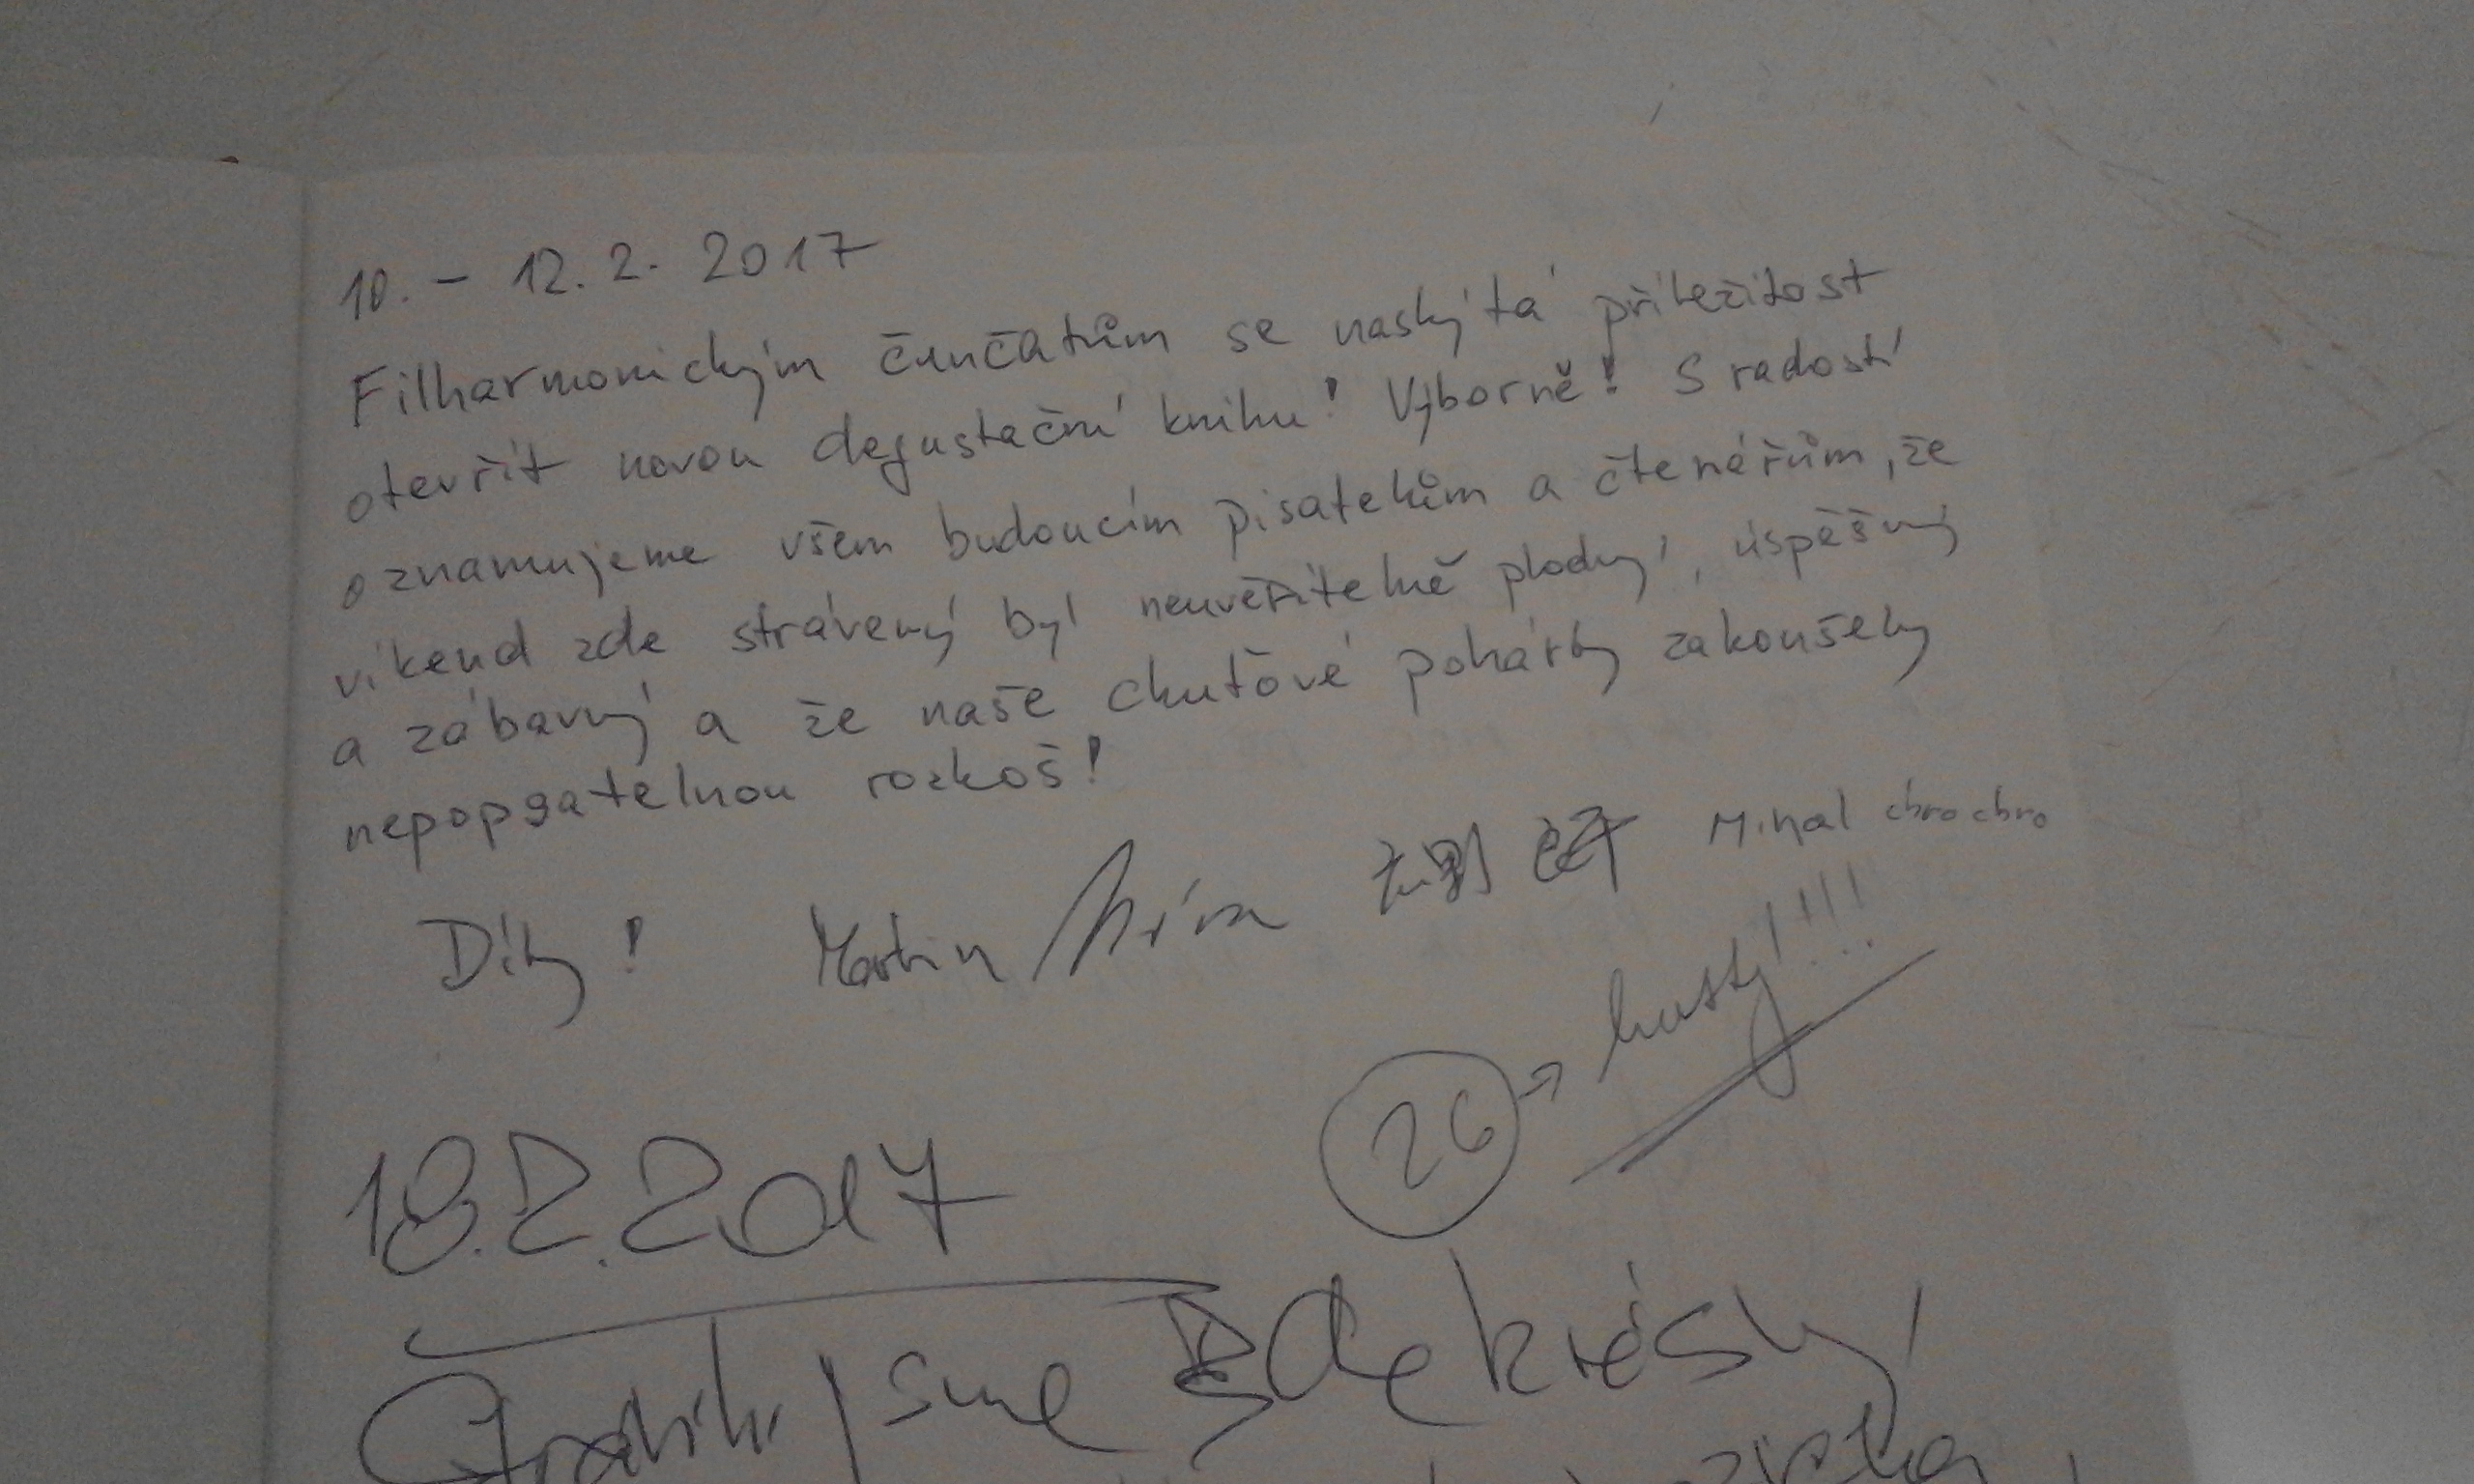 10. - 12. 2. 2017
Filharmonickým čunčatům se naskýtá příležitost
otevřít novou degustační knihu! Výborně! S radostí
oznamujeme všem budoucím pisatelům a čtenářům, že
víkend zde strávený byl neuvěřitelně plodný, úspěšný
a zábavný a že naše chuťové pohárky zakoušely
nepopsatelnou rozkoš!
Díky! Martin
Michal chrochro
26 → hustý!!!
18.2.2017
Strávili jsme zde krásný